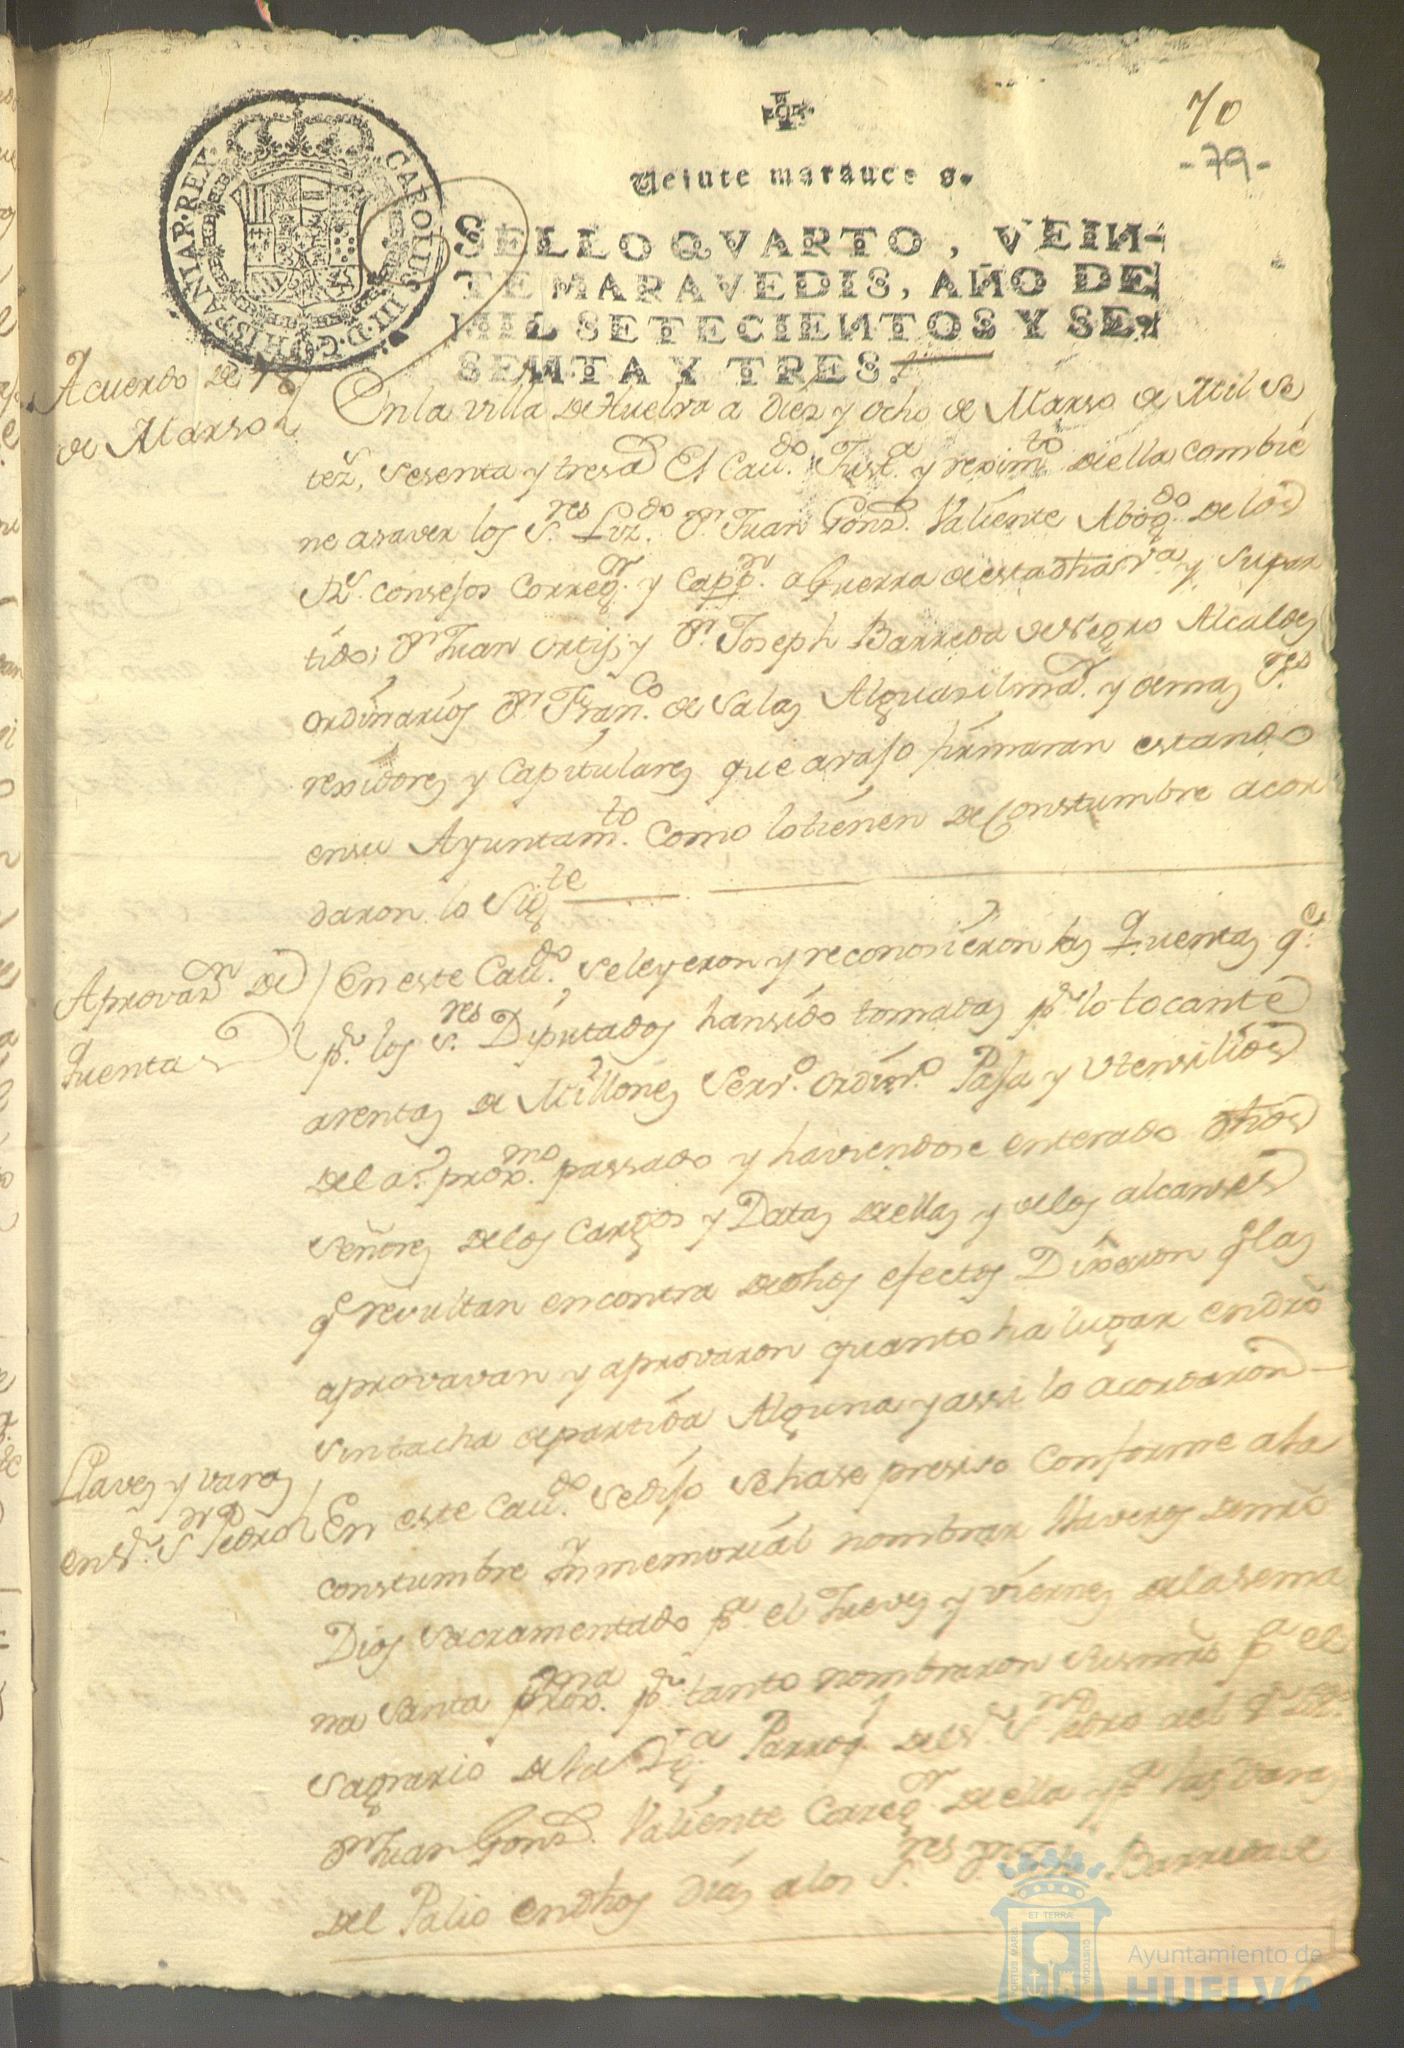 70
-79-
Veinte maravedis.
CAROLUS·III·D·G·HISPANIAR·REX·
SELLO QVARTO, VEIN-
TE MARAVEDIS, AÑO DE
MIL SETECIENTOS Y SE-
SENTA Y TRES.
Acuerdo de 18
de Marso
En la villa de Huelva a Diez y ocho de Marso de Mil Se
tez.s sesenta y tres a El Cau.do Just.a y reximto della combie
ne a saver los S.res Liz.do Dn Juan Gonz. Valiente Abog.do de los
Rs. consejos Correg.or y Capp.n a Guerra de esta dha v.a y supar
tido; Dn Juan Ortiz, y Dn Joseph Barreda de Negro Alcaldes
ordinarios Dn Fran.co de Salas Alguasilmar. y demas S.res
rexidores y Capitulares que avajo firmaran estando
en su Ayuntam.to como lo tienen de Constumbre acor
daron lo Sigte
Aprovaz.n de
quentas
En este Cau.do se leyeron y reconosieron las quentas q.e
p.r los S.res Diputados han sido tomadas p.r lo tocante
a rentas de Millones Serv.o ordinr.o Pasa y Utensilios
del a.o prox.mo passado y haviendose enterado dhos
señores de los cargos y Datas dellas y de los alcanses
q.e resultan en contra de dhos efectos Dixeron q.e las
aprovavan y aprovaron quanto ha lugar en dro
sin tacha de partida Alguna y assi lo acordaron
Llaves y varas
en Sr. Sn Pedro
En este Cau.do se diso se hase presiso conforme a la
constumbre Inmemorial nombrar llaveros de nro
Dios sacramentado p.a el Jueves y viernes de la sema
na santa prox.ma p.r tanto nombraron sus mrs p.a el
sagrario de la Ig.a Parroq. del Sr. Sn Pedro al
Dn Juan Gonz. Valiente Correg.or della y p.a las varas
del Palio en dhos dias a los S.res Dn Joseph Barreda de
ET TERRA
PORTUS MARIS
CUSTODIA
Ayuntamiento de
HUELVA